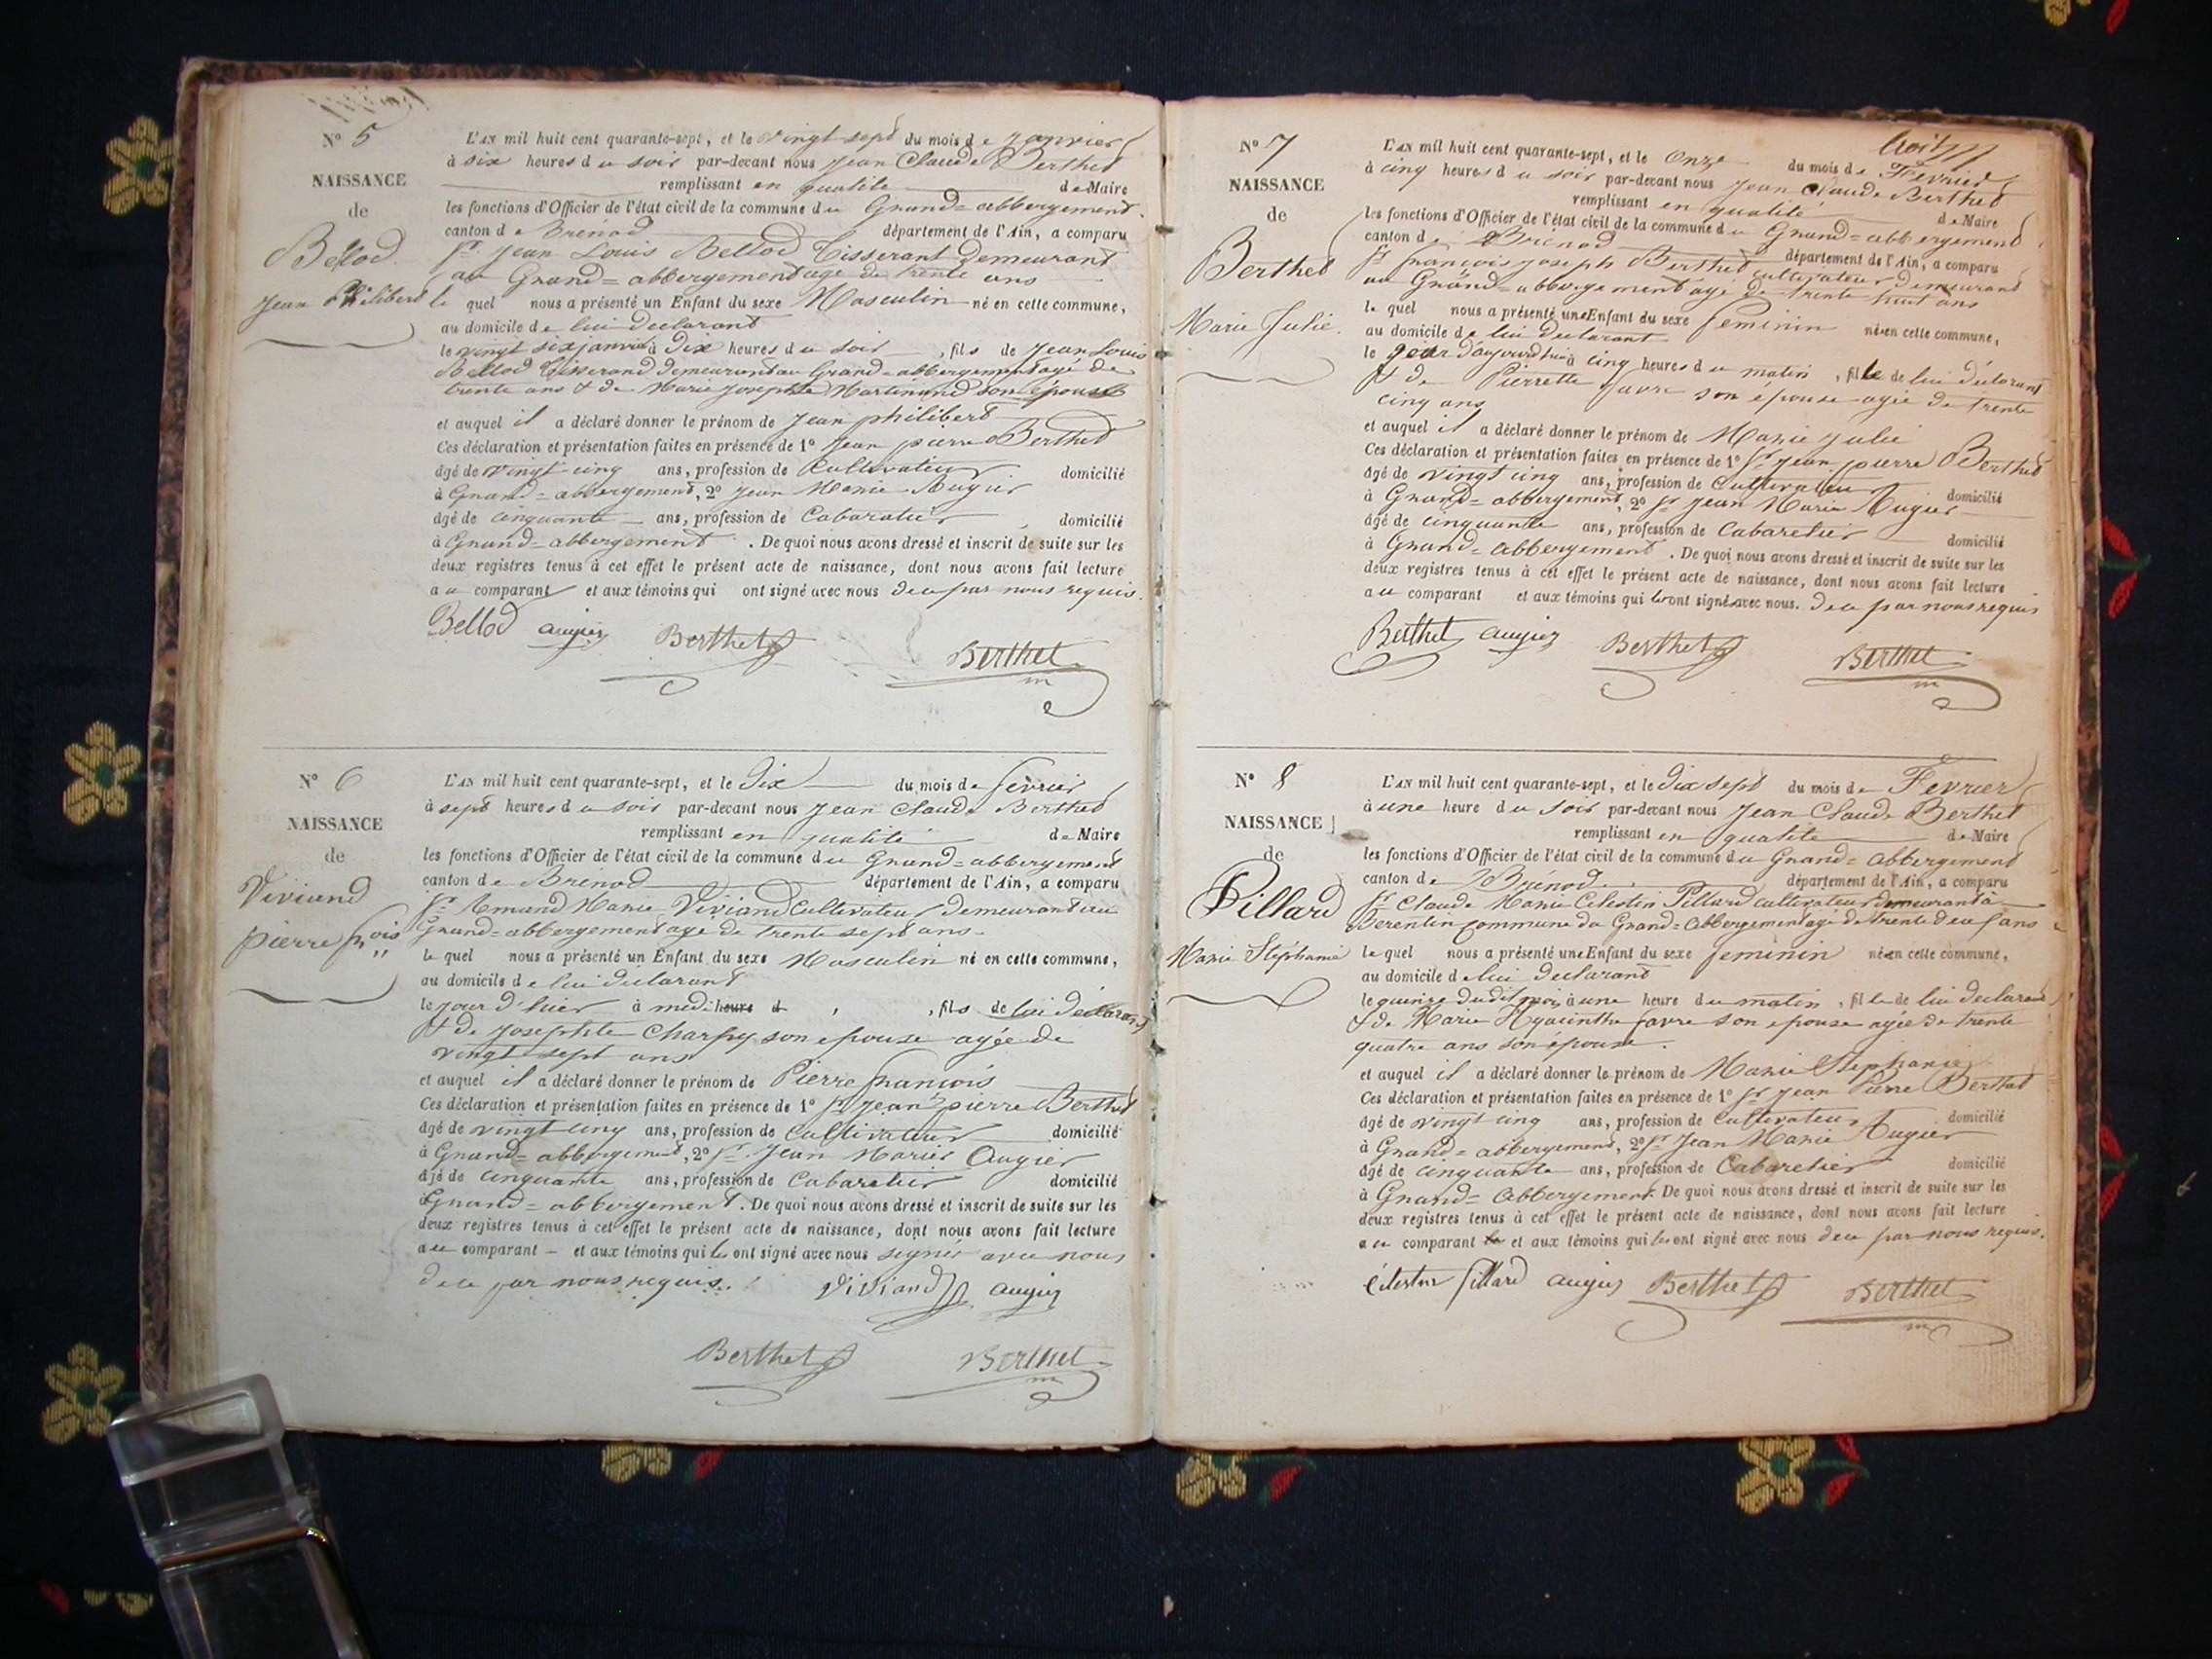 N° 5
NAISSANCE
de
Bellod
Jean Philibert
L'AN mil huit cent quarante-sept, et le vingt-sept du mois de Janvier
à six heures du soir par-devant nous Jean Claude Berthet
remplissant en qualité de Maire
les fonctions d'Officier de l'état civil de la commune du Grand=abbergement
canton de Brénod département de l'Ain, a comparu
Sr. Jean Louis Bellod Tisserant demeurant
au Grand=abbergement agé de trente ans
le quel nous a présenté un Enfant du sexe Masculin né en cette commune,
au domicile de lui declarant
le vingt six janvier à Dix heures du soir , fils de Jean Louis
Bellod Tisserand demeurant au Grand=abbergement agé de
trente ans & de Marie Josephte Martinand son épouse
et auquel il a déclaré donner le prénom de Jean philibert
Ces déclaration et présentation faites en présence de 1° Jean pierre Berthet
âgé de vingt cinq ans, profession de Cultivateur domicilié
à Grand=abbergement, 2° Jean Marie Augier
âgé de cinquante ans, profession de Cabaretier domicilié
à Grand=abbergement. De quoi nous avons dressé et inscrit de suite sur les
deux registres tenus à cet effet le présent acte de naissance, dont nous avons fait lecture
au comparant et aux témoins qui ont signé avec nous de ce par nous requis.
Bellod augier Berthet Berthet
m
N° 6
NAISSANCE
de
Viviand
pierre fçois
L'AN mil huit cent quarante-sept, et le Dix du mois de fevrier
à sept heures du soir par-devant nous Jean Claude Berthet
remplissant en qualité de Maire
les fonctions d'Officier de l'état civil de la commune du Grand=abbergement
canton de Brénod département de l'Ain, a comparu
Sr Amand Marie Viviand Cultivateur demeurant au
Grand=abbergement agé de trente sept ans
le quel nous a présenté un Enfant du sexe Masculin né en cette commune,
au domicile de lui déclarant
le jour d'hier à midi heure d , fils de lui déclarant
& de Josephte Charpy son epouse agée de
vingt sept ans
et auquel il a déclaré donner le prénom de Pierre françois
Ces déclaration et présentation faites en présence de 1° Sr Jean pierre Berthet
âgé de vingt cinq ans, profession de cultivateur domicilié
à Grand=abbergement, 2° Sr Jean Marie Augier
âgé de cinquante ans, profession de Cabaretier domicilié
à Grand=abbergement. De quoi nous avons dressé et inscrit de suite sur les
deux registres tenus à cet effet le présent acte de naissance, dont nous avons fait lecture
au comparant et aux témoins qui les ont signé avec nous signés avec nous
de ce par nous requis.
Viviand augier
Berthet Berthet
m
N° 7
NAISSANCE
de
Berthet
Marie Julie
trois
L'AN mil huit cent quarante-sept, et le onze du mois de Fevrier
à cinq heures du soir par-devant nous Jean Claude Berthet
remplissant en qualité de Maire
les fonctions d'Officier de l'état civil de la commune du Grand=abbergement
canton de Brénod département de l'Ain, a comparu
Sr françois joseph Berthet cultivateur demeurant
au Grand=abbergement âgé de trente huit ans
le quel nous a présenté une Enfant du sexe feminin née en cette commune,
au domicile de lui declarant
le jour d'aujourd'hui à cinq heures du matin , fille de lui déclarant
& de Pierrette favre son épouse agée de trente
cinq ans
et auquel il a déclaré donner le prénom de Marie Julie
Ces déclaration et présentation faites en présence de 1° Sr Jean pierre Berthet
âgé de vingt cinq ans, profession de Cultivateur domicilié
à Grand=abbergement, 2° Sr Jean Marie Augier
âgé de cinquante ans, profession de Cabaretier domicilié
à Grand=abbergement. De quoi nous avons dressé et inscrit de suite sur les
deux registres tenus à cet effet le présent acte de naissance, dont nous avons fait lecture
au comparant et aux témoins qui les ont signé avec nous. de ce par nous requis
Berthet augier Berthet Berthet
m
N° 8
NAISSANCE
de
Pillard
Marie Stéphanie
L'AN mil huit cent quarante-sept, et le Dix sept du mois de Fevrier
à une heure du soir par-devant nous Jean Claude Berthet
remplissant en qualité de Maire
les fonctions d'Officier de l'état civil de la commune du Grand=abbergement
canton de Brénod département de l'Ain, a comparu
Sr Claude Marie Célestin Pillard cultivateur demeurant à
commune du Grand=abbergement agé de trente deux ans
le quel nous a présenté une Enfant du sexe feminin née en cette commune,
au domicile de lui declarant
le quinze dudit mois à une heure du matin , fille de lui declarant
& de Marie Hyacinthe favre son epouse agée de trente
quatre ans son épouse.
et auquel il a déclaré donner le prénom de Marie Stephanie
Ces déclaration et présentation faites en présence de 1° Sr Jean Pierre Berthet
âgé de vingt cinq ans, profession de cultivateur domicilié
à Grand=abbergement, 2° Sr Jean Marie Augier
âgé de cinquante ans, profession de Cabaretier domicilié
à Grand=abbergement. De quoi nous avons dressé et inscrit de suite sur les
deux registres tenus à cet effet le présent acte de naissance, dont nous avons fait lecture
au comparant et aux témoins qui les ont signé avec nous de ce par nous requis.
Célestin pillard augier Berthet Berthet
m